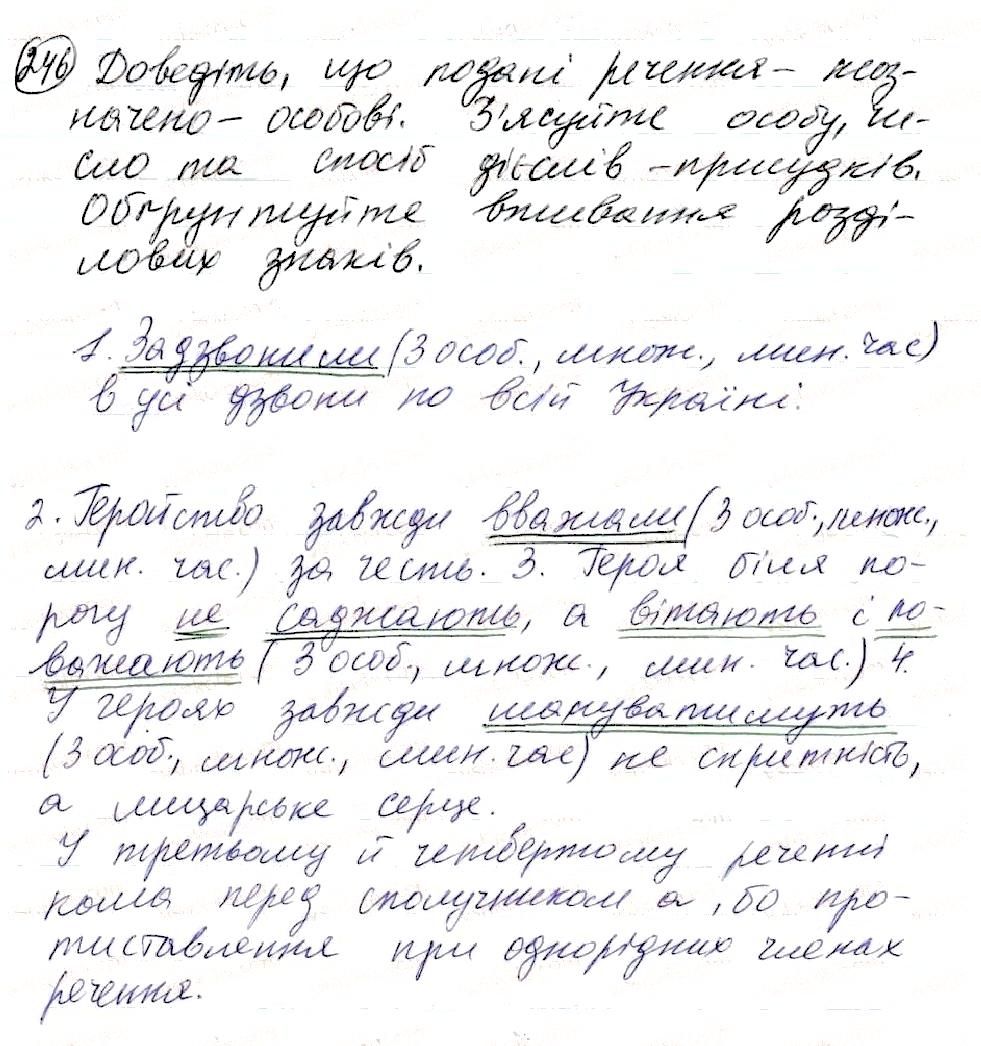 246 Доведіть, що подані речення – неоз-
начено – особові. З'ясуйте особу, чи-
сло та спосіб дієслів – присудків.
Обґрунтуйте вживання розді-
лових знаків.
1. Задзвонили (3 особ., множ., мин. час)
в усі дзвони по всій Україні.
2. Геройство завжди вважали (3 особ., множ.,
мин. час.) за честь. 3. Героя біля по-
рогу не саджають, а вітають і по-
важають (3 особ., множ., мин. час.) 4.
У героях завжди шануватимуть
(3 особ., множ., мин. час) не спритність,
а лицарське серце.
У третьому й четвертому реченні
кома перед сполучником а, бо про-
тиставлення при однорідних членах
речення.